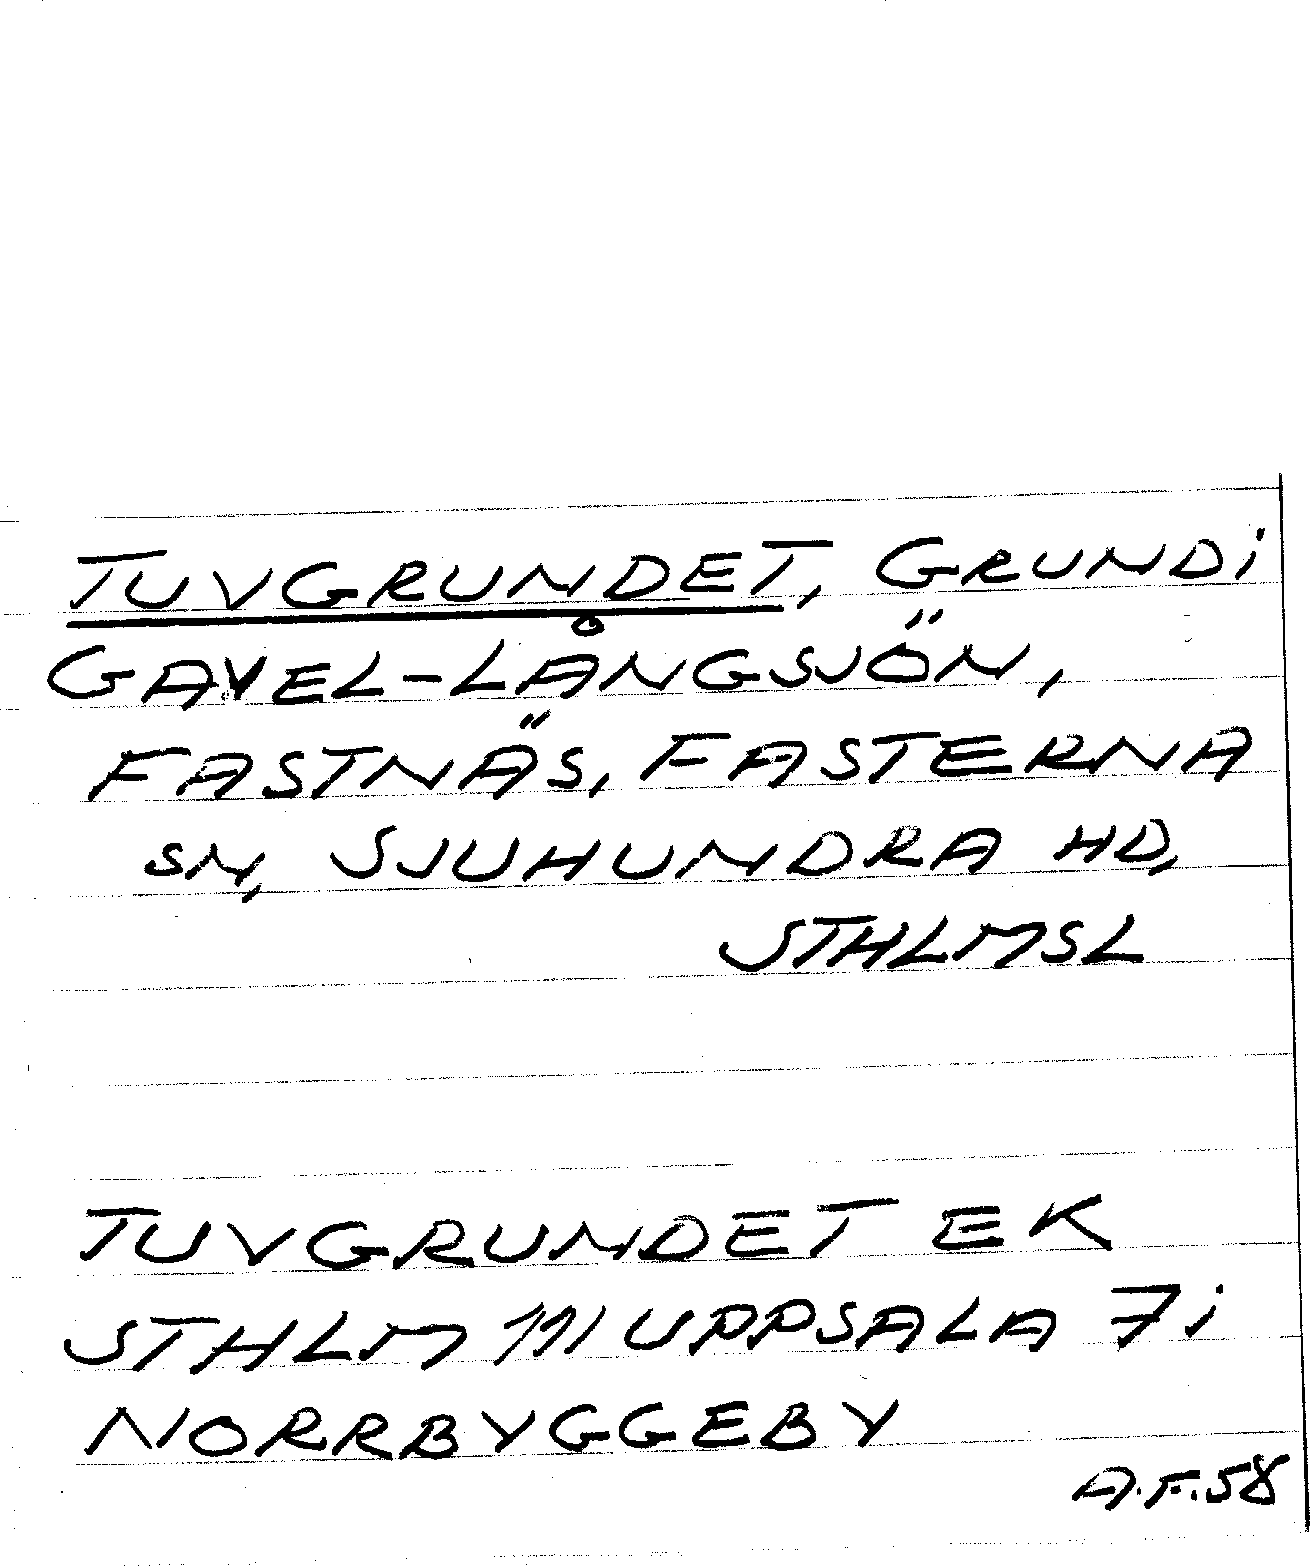 TUVGRUNDET, GRUND i
GAVEL-LÅNGSJÖN,
FASTNÄS, FASTERNA
SN, SJUHUNDRA HD,
STHLMSL
TUVGRUNDET EK
STHLM 111 UPPSALA 7 i
NORRBYGGEBY
A.F.58